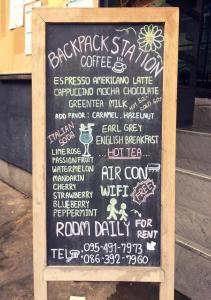 BACKPACK STATION
COFFEE
ESPRESSO AMERICANO LATTE
CAPPUCCINO MOCHA CHOCOLATE
GREENTEA MILK
HOT 50฿
COLD 60฿
ADD FAVOR : CARAMEL, HAZELNUT
ITALIAN SODA
LIME ROSE
PASSION FRUIT
WATERMELON
MANDARIN
CHERRY
STRAWBERRY
BLUEBERRY
PEPPERMINT
EARL GREY
ENGLISH BREAKFAST
... HOT TEA ...
AIR CON
WIFI
FREE
ROOM DAILY FOR RENT
TEL 095-491-7973
086-392-7960